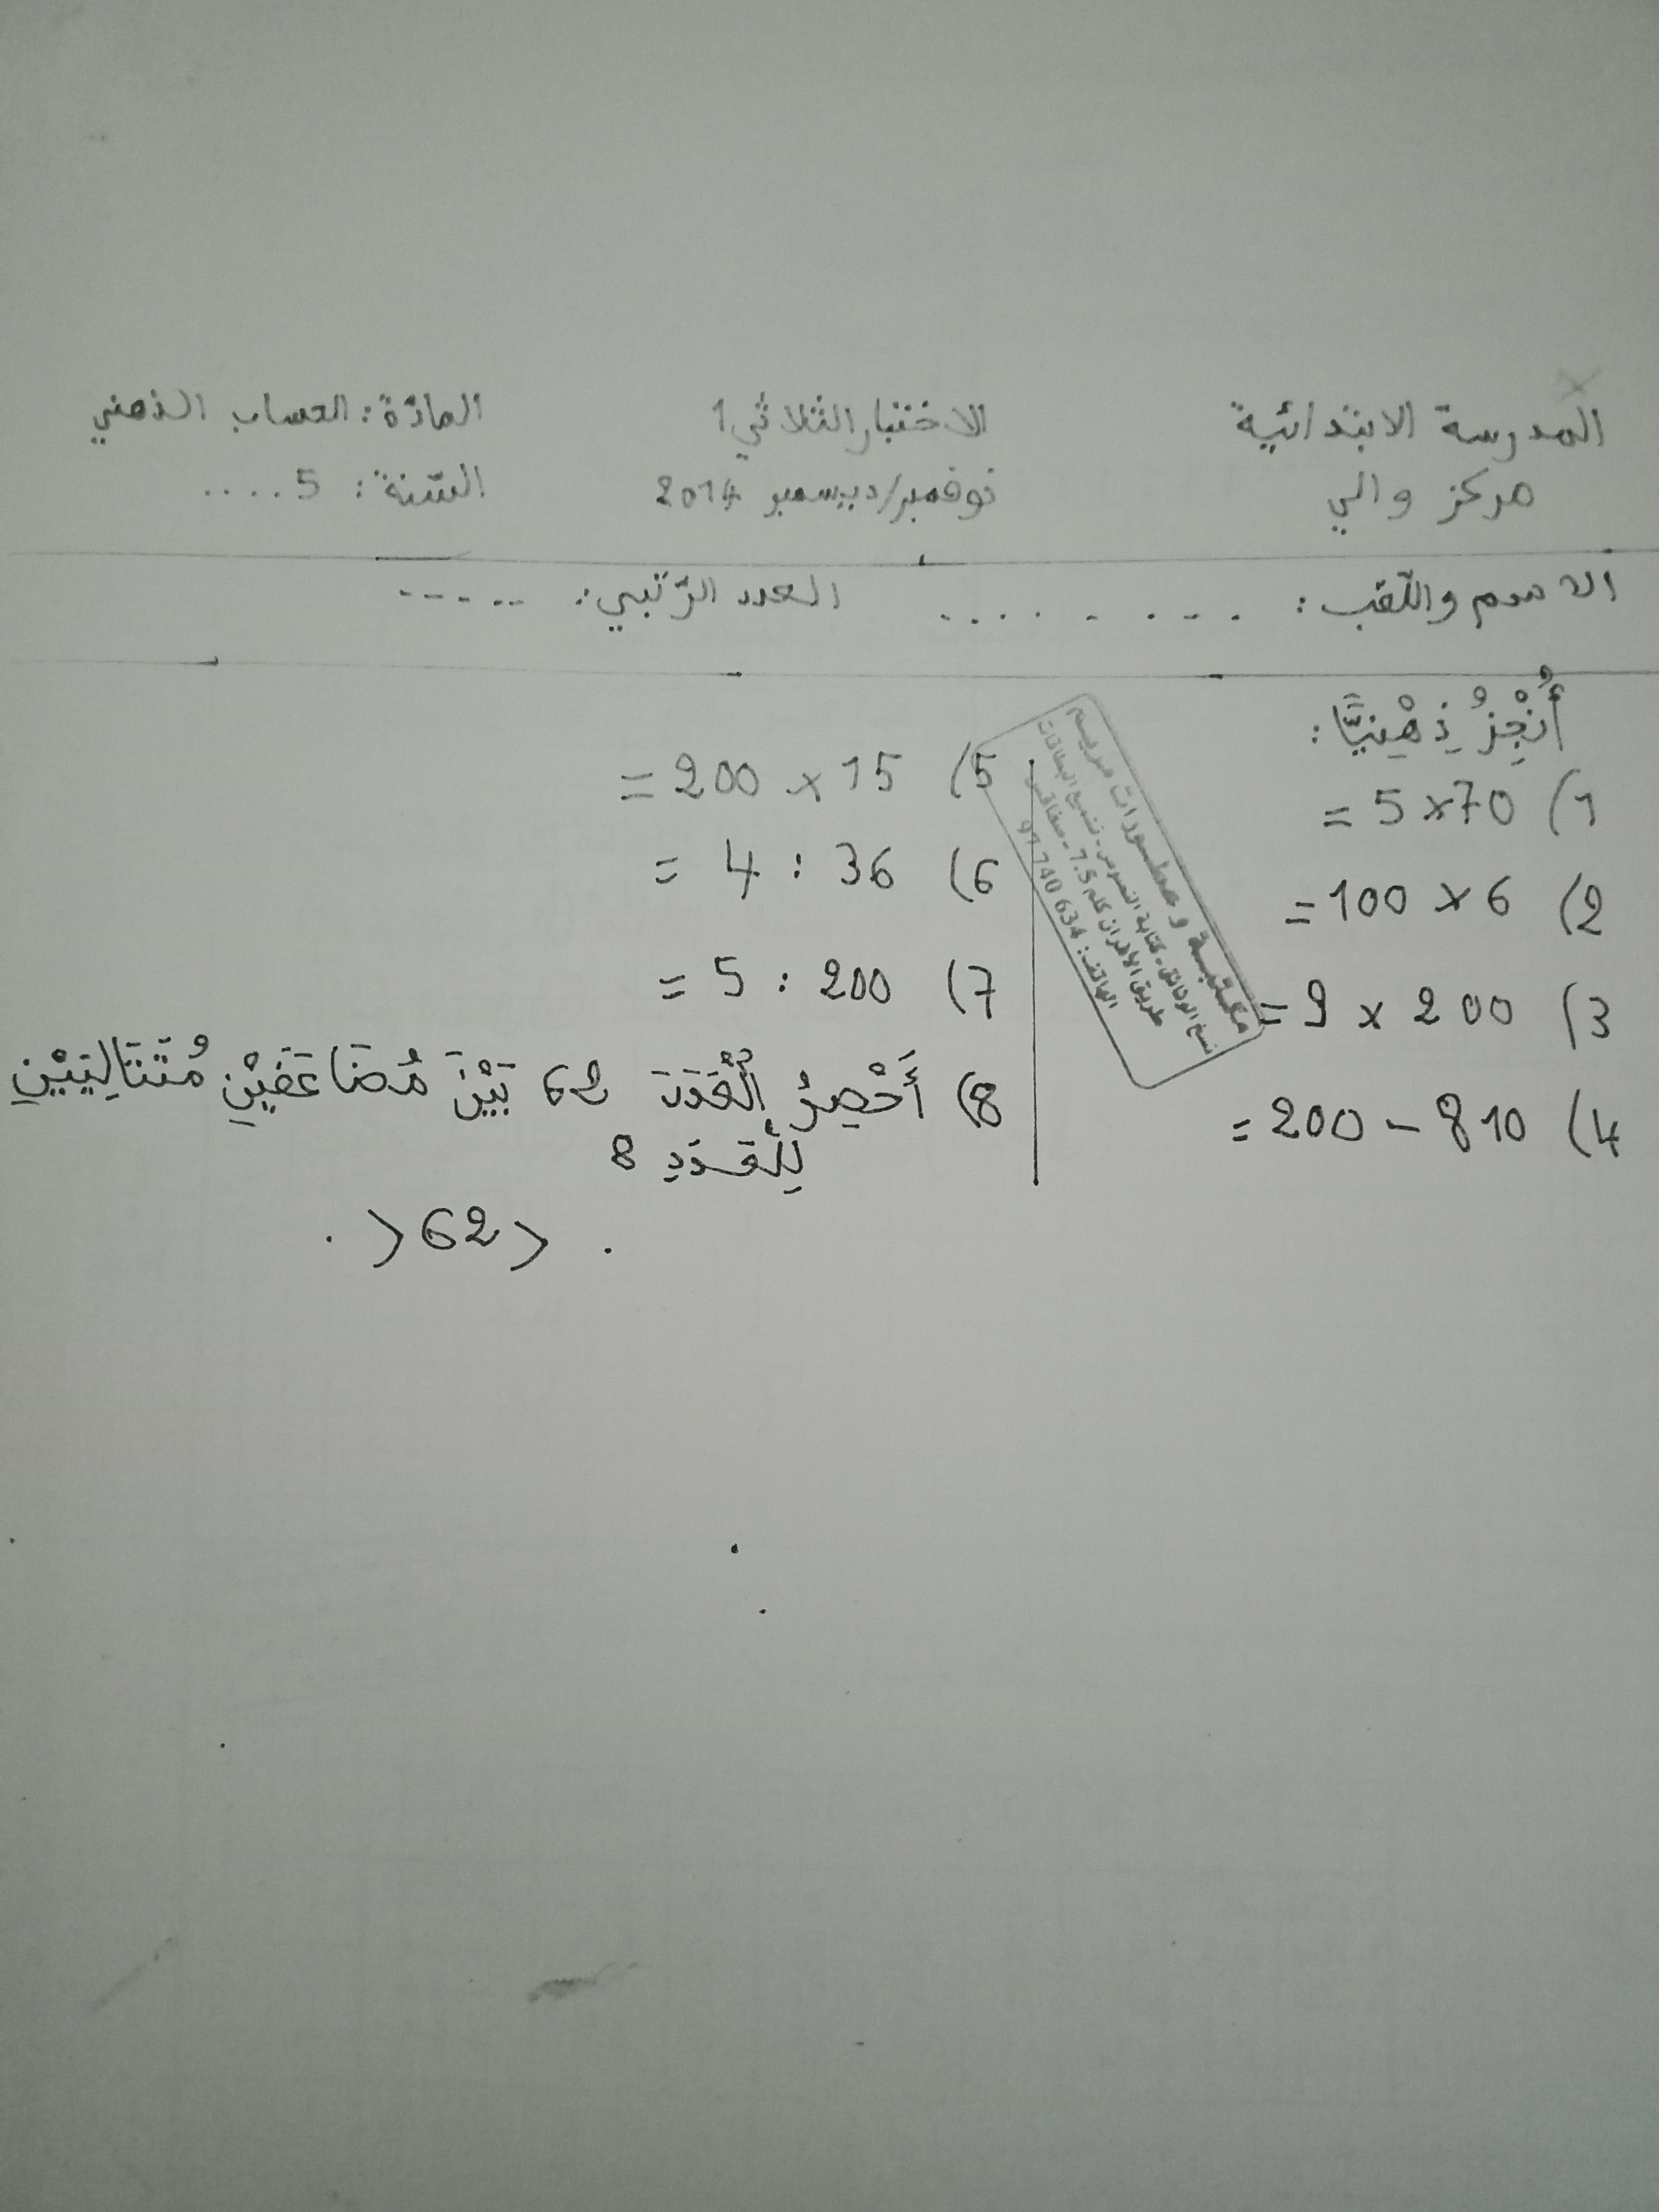 المدرسة الابتدائية
مركز والي
الاختبار الثلاثي 1
نوفمبر/ديسمبر 2014
المادّة: الحساب الذهني
السّنة: 5 .....
الاسم واللّقب: . . . . . . . . .
العدد الرّتبي: - - - - -
أُنْجِزُ ذِهْنِيًّا:
1) 70 × 5 =
2) 6 × 100 =
3) 200 × 9 =
4) 810 - 200 =
5) 15 × 200 =
6) 36 : 4 =
7) 200 : 5 =
8) أَحْصِرُ الْعَدَدَ 62 بَيْنَ مُضَاعَفَيْنِ مُتَتَالِيَيْنِ
لِلْعَدَدِ 8
. > 62 > .
مكتبة و مطبورات مريم
نسخ الوثائق - كتابة النصوص - نسخ البطاقات
طريق الأفران كلم 7.5 - صفاقس
الهاتف: 97 740 634